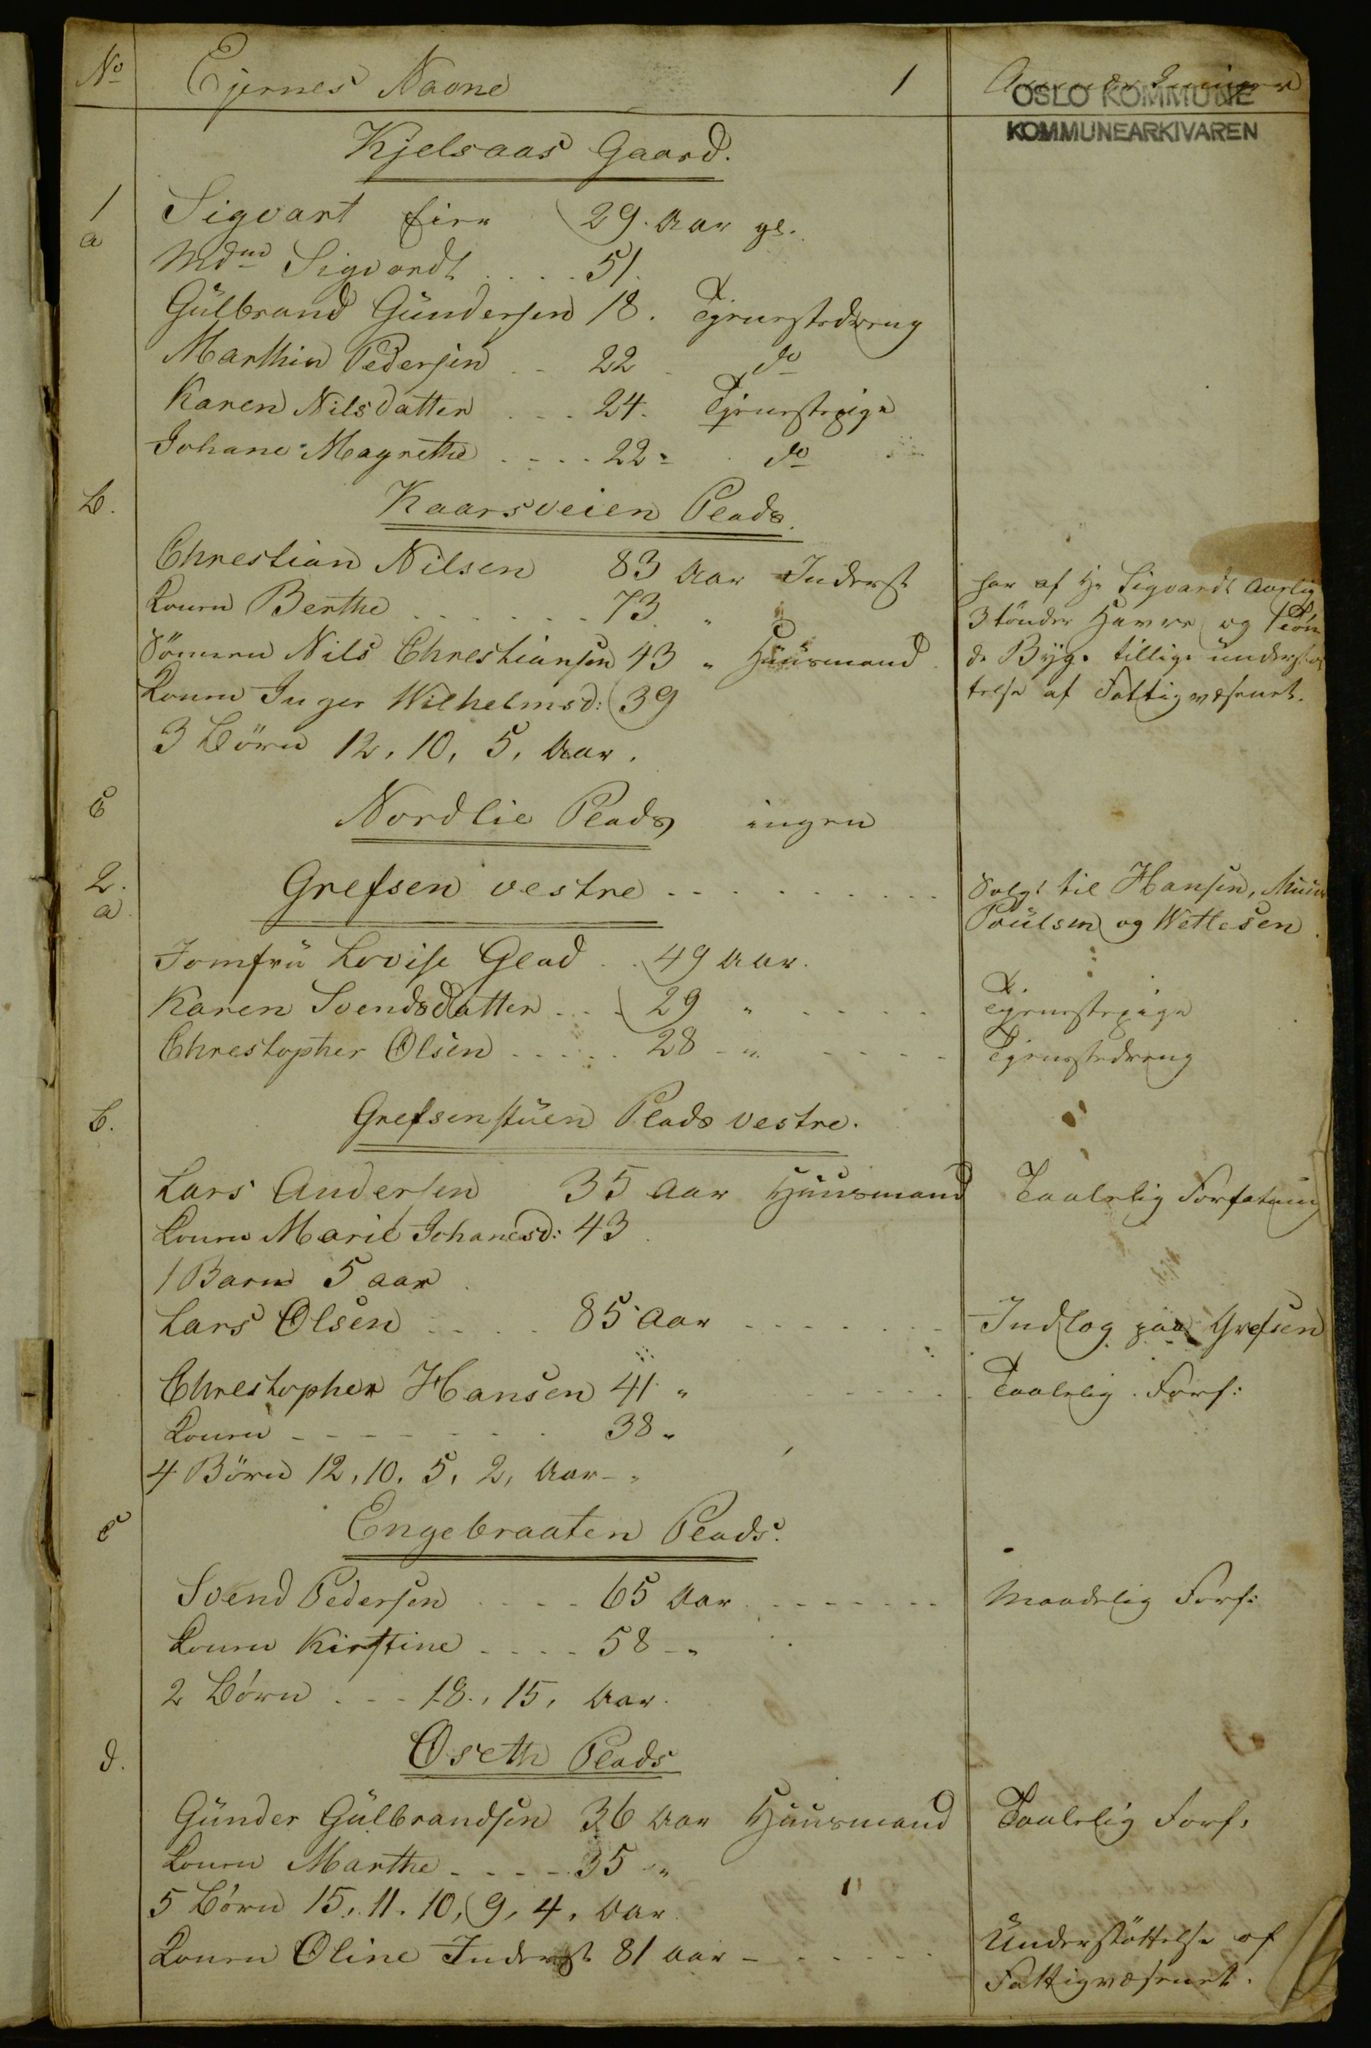 No Ejernes Navne 1 Anmærkninger
OSLO KOMMUNE
KOMMUNEARKIVAREN
Kjelsaas Gaard.
1 a Sigvart Eier 29. Aar gl.
Mdme Sigvardt . . . . 51.
Gülbrand Gündersen 18. Tjenestedreng
Marthin Pedersen . . 22 do
Karen Nilsdatter . . . 24. Tjenestepige
Johane Magrethe . . . . 22 do
b. Kaarsveien Plads.
Chrestian Nilsen 83 Aar Inderst har af Hr Sigvardt aarlig
Konen Berthe . . . . . . . 73 " 3 tönder Havre og 1 Tön
Sönnen Nils Chrestiansen 43 " Huusmand de Byg. tillige understøt
Konen Inger Wilhelmsd: 39 telse af Fattigvæsenet.
3 Börn 12, 10, 5, Aar.
c Nordlie Plads ingen
2. a Grefsen vestre . . . . . . . . . Solgt til Hansen, Muus
Poulsen og Wettesen.
Jomfrü Lovise Glad . . 49 Aar.
Karen Svendsdatter . . . 29 " . . . . . Tjenestepige
Chrestopher Olsen . . . . . 28 " . . . . . Tjenestedreng
b. Grefsenstüen Plads vestre.
Lars Andersen 35 Aar Huusmand Taalelig Forfatning
Konen Marie Johanesd: 43.
1 Barn 5 aar.
Lars Olsen . . . . 85 Aar . . . . . . . Indlog paa Grefsen
Chrestopher Hansen 41 " . . . . . Taalelig Forf:
Konen . . . . . . . 38 "
4 Börn 12, 10, 5, 2, Aar
c Engebraaten Plads.
Svend Pedersen . . . . 65 Aar . . . . . . . Maadelig Forf:
Konen Kirstine . . . . 58 "
2 Börn . . . 18, 15, Aar.
d. Oseth Plads
Günder Gülbrandsen 36 Aar Huusmand Taalelig Forf:
Konen Marthe . . . . . 35 "
5 Börn 15, 11, 10, 9, 4, Aar.
Konen Oline Inderst 81 aar . . . . . . Understöttelse af
Fattigvæsenet.